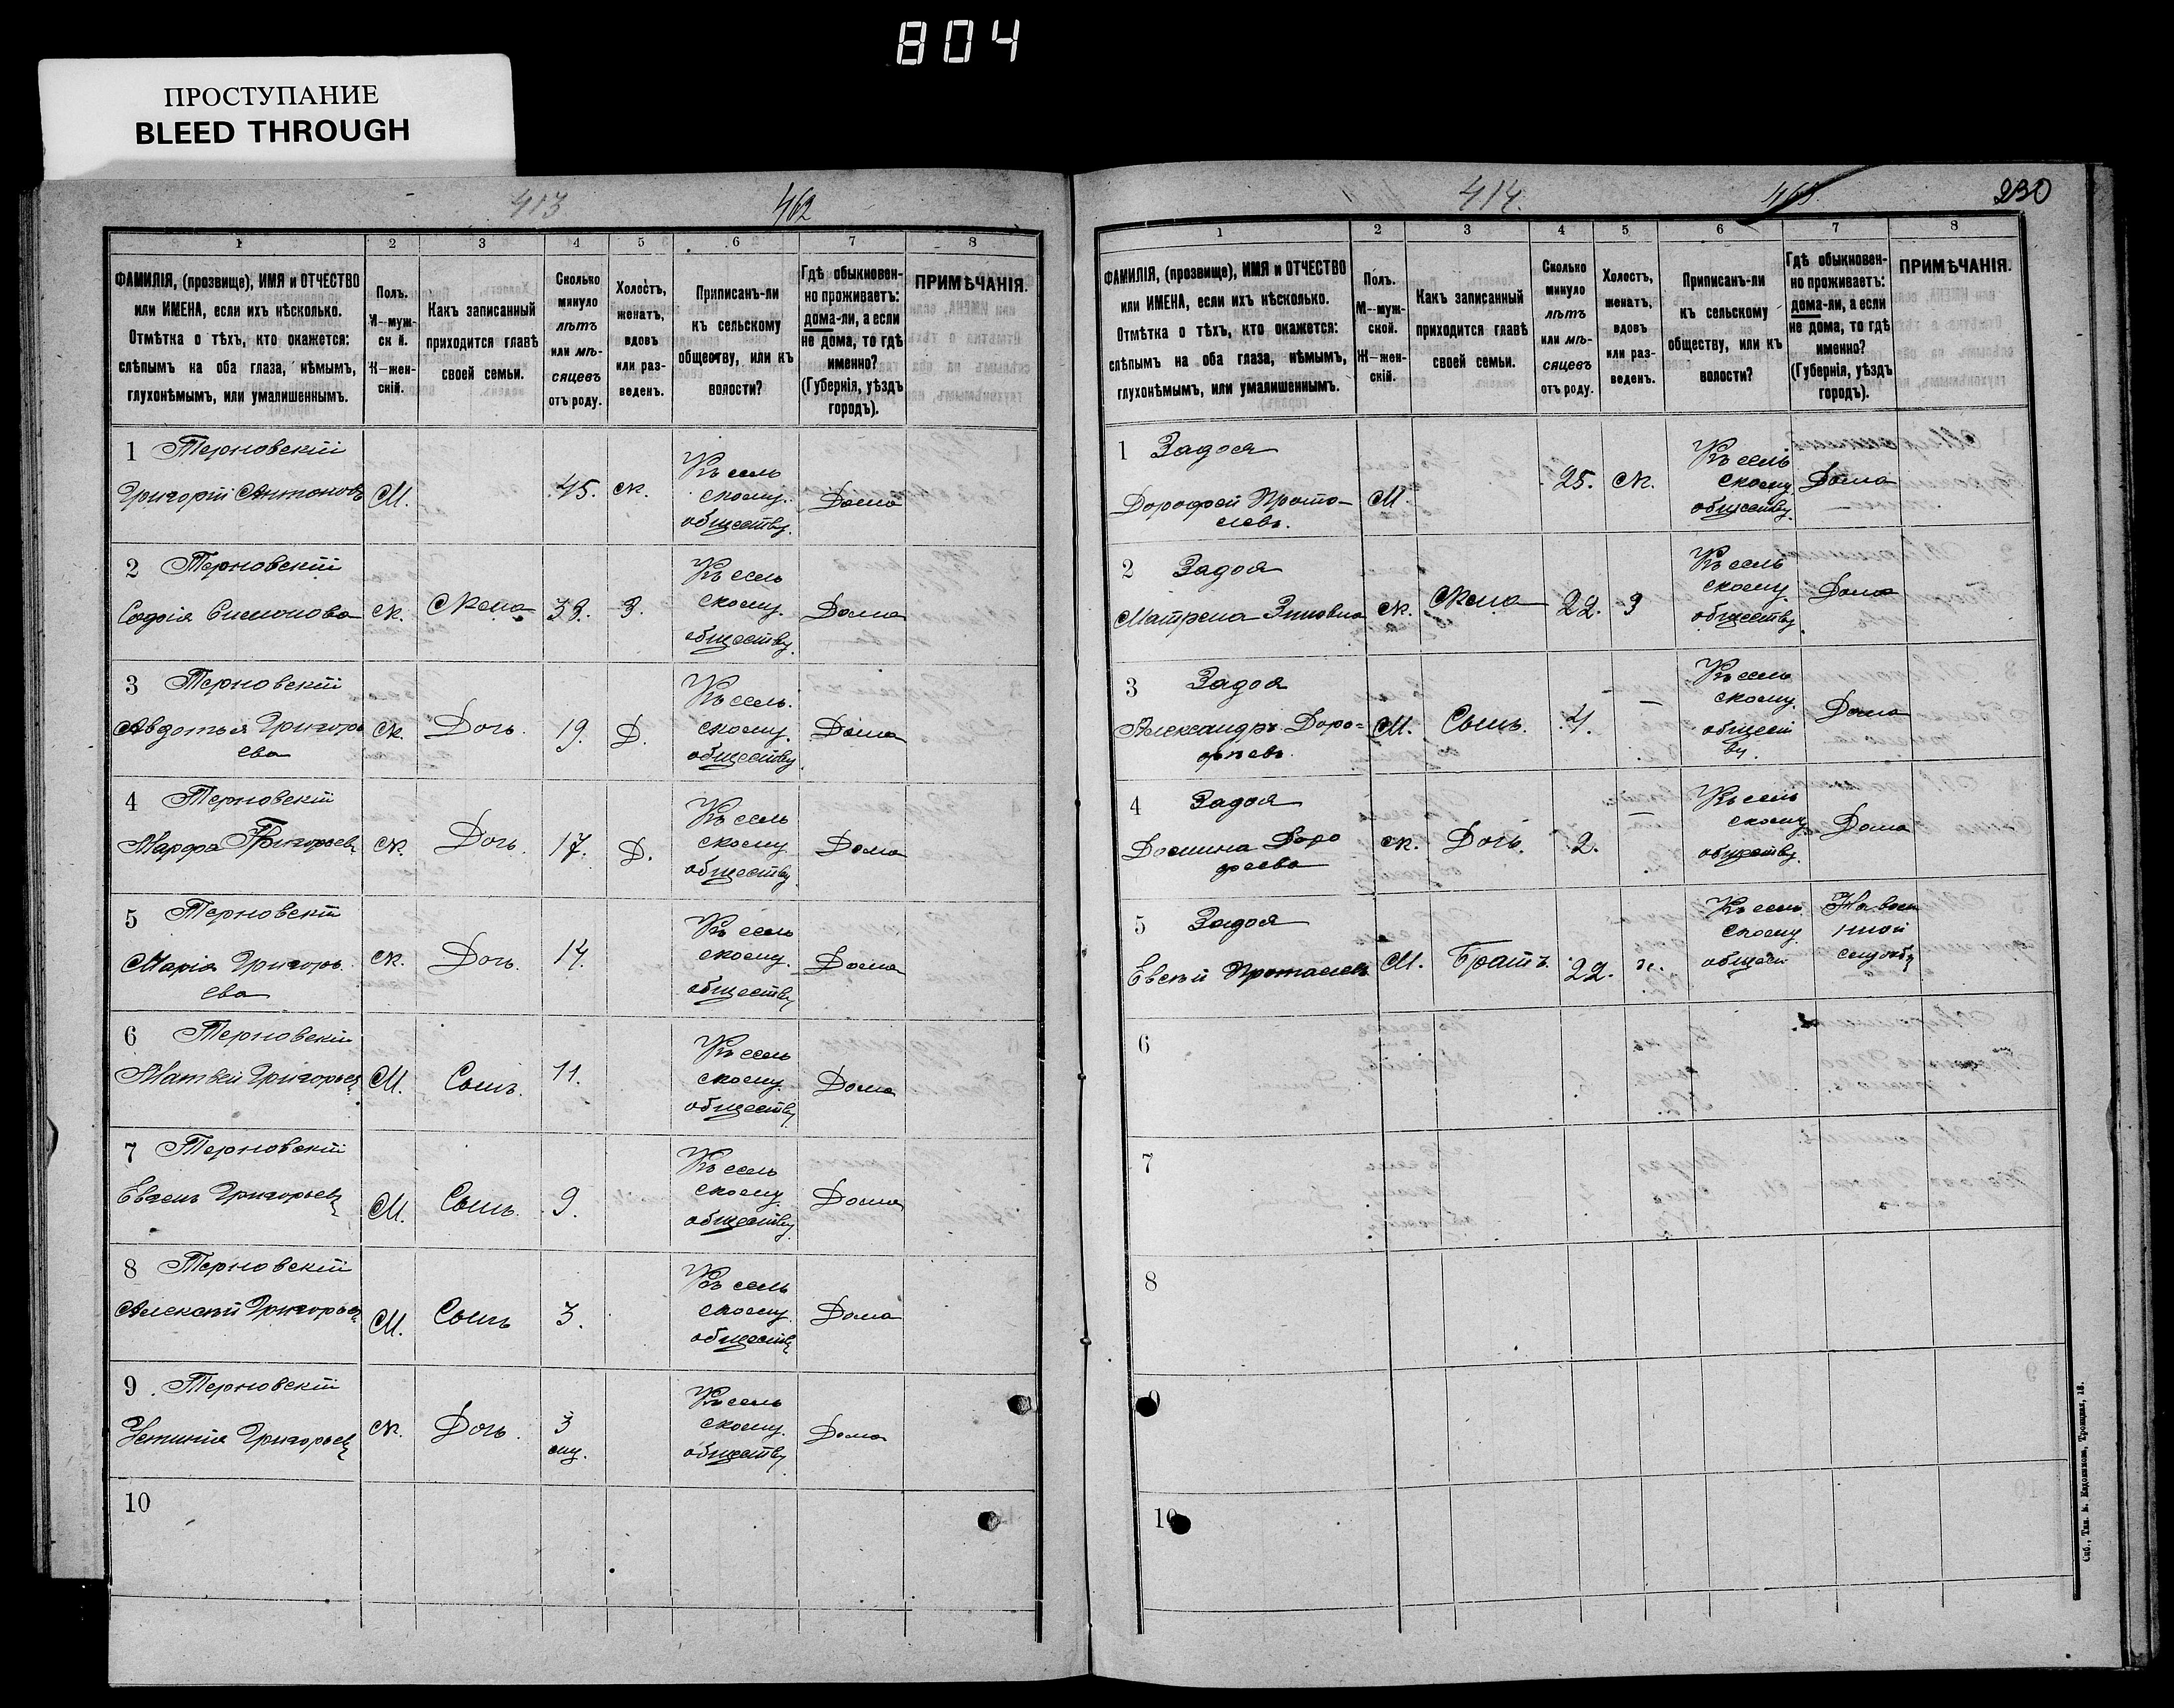 804
ПРОСТУПАНИЕ
BLEED THROUGH
413
462
1 2 3 4 5 6 7 8
ФАМИЛІЯ, (прозвище), ИМЯ и ОТЧЕСТВО или ИМЕНА, если ихъ нѣсколько. Отмѣтка о тѣхъ, кто окажется: слѣпымъ на оба глаза, нѣмымъ, глухонѣмымъ, или умалишеннымъ.
Полъ. М—мужской. Ж—женскій.
Какъ записанный приходится главѣ своей семьи.
Сколько минуло лѣтъ или мѣсяцевъ отъ роду.
Холостъ, женатъ, вдовъ или разведенъ.
Приписанъ-ли къ сельскому обществу, или къ волости?
Гдѣ обыкновенно проживаетъ: дома-ли, а если не дома, то гдѣ именно? (Губернія, уѣздъ городъ).
ПРИМѢЧАНІЯ.
1 Терновскій
Григорій Антоновъ М. 45. ж. Къ сельскому обществу. Дома
2 Терновскій
Софія Симонова ж. Жена 38. З. Къ сельскому обществу. Дома
3 Терновскій
Авдотья Григорьева ж. Дочь 19. Д. Къ сельскому обществу Дома
4 Терновскій
Марфа Григорьев ж. Дочь. 17. Д. Къ сельскому обществу Дома
5 Терновскій
Марія Григорьева ж. Дочь. 14. Къ сельскому. обществу Дома
6 Терновскій
Матвѣй Григорьев М. Сынъ. 11. Къ сельскому. обществу Дома
7 Терновскій
Григорьев М. Сынъ. 9. Къ сельскому обществу Дома
8 Терновскій
Алексѣй Григорьев М. Сынъ 3. Къ сельскому обществ Дома
9 Терновскій
Устинія Григорьев ж. Дочь. 3 Къ сельскому. обществу Дома
10
414.
230
1 2 3 4 5 6 7 8
ФАМИЛІЯ, (прозвище), ИМЯ и ОТЧЕСТВО или ИМЕНА, если ихъ нѣсколько. Отмѣтка о тѣхъ, кто окажется: слѣпымъ на оба глаза, нѣмымъ, глухонѣмымъ, или умалишеннымъ.
Полъ. М—мужской. Ж—женскій.
Какъ записанный приходится главѣ своей семьи.
Сколько минуло лѣтъ или мѣсяцевъ отъ роду.
Холостъ, женатъ, вдовъ или разведенъ.
Приписанъ-ли къ сельскому обществу, или къ волости?
Гдѣ обыкновенно проживаетъ: дома-ли, а если не дома, то гдѣ именно? (Губернія, уѣздъ городъ).
ПРИМѢЧАНІЯ.
1 Задоя
Дорофей М. 25. ж. Къ сельскому обществу. Дома
2 Задоя
Матрена Зиновна ж. Жена 22. З Къ сельскому. обществу Дома
3 Задоя
Александръ Дорофѣевъ. М. Сынъ. 4. — Къ сельскому. обществу. Дома
4 Задоя
Домина Дорофеева ж. Дочь. 2. — Къ сельскому обществу. Дома
5 Задоя
Евсѣй М. Братъ. 22. Къ сельскому. общест На военной службѣ
6
7
8
9
10
Спб., Тип. М. Кадошникова, Троицкая, 18.